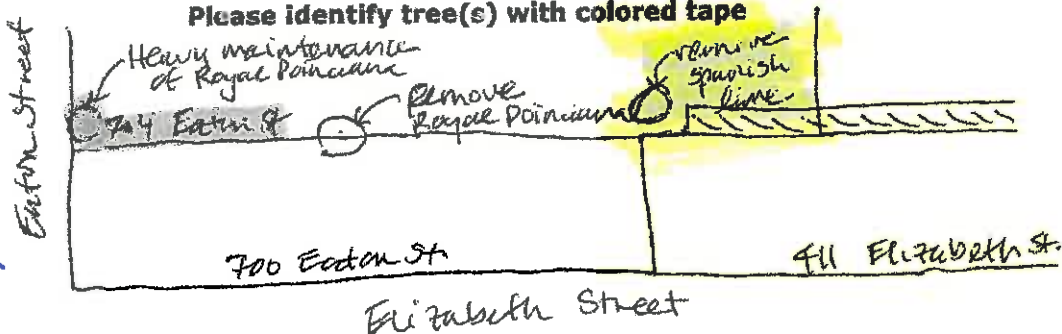 Please identify tree(s) with colored tape
Eaton Street
Heavy maintenance
of Royal Poinciana
704 Eaton St
Remove
Royal Poinciana
remove
Spanish
lime
700 Eaton St.
411 Elizabeth St.
Elizabeth Street